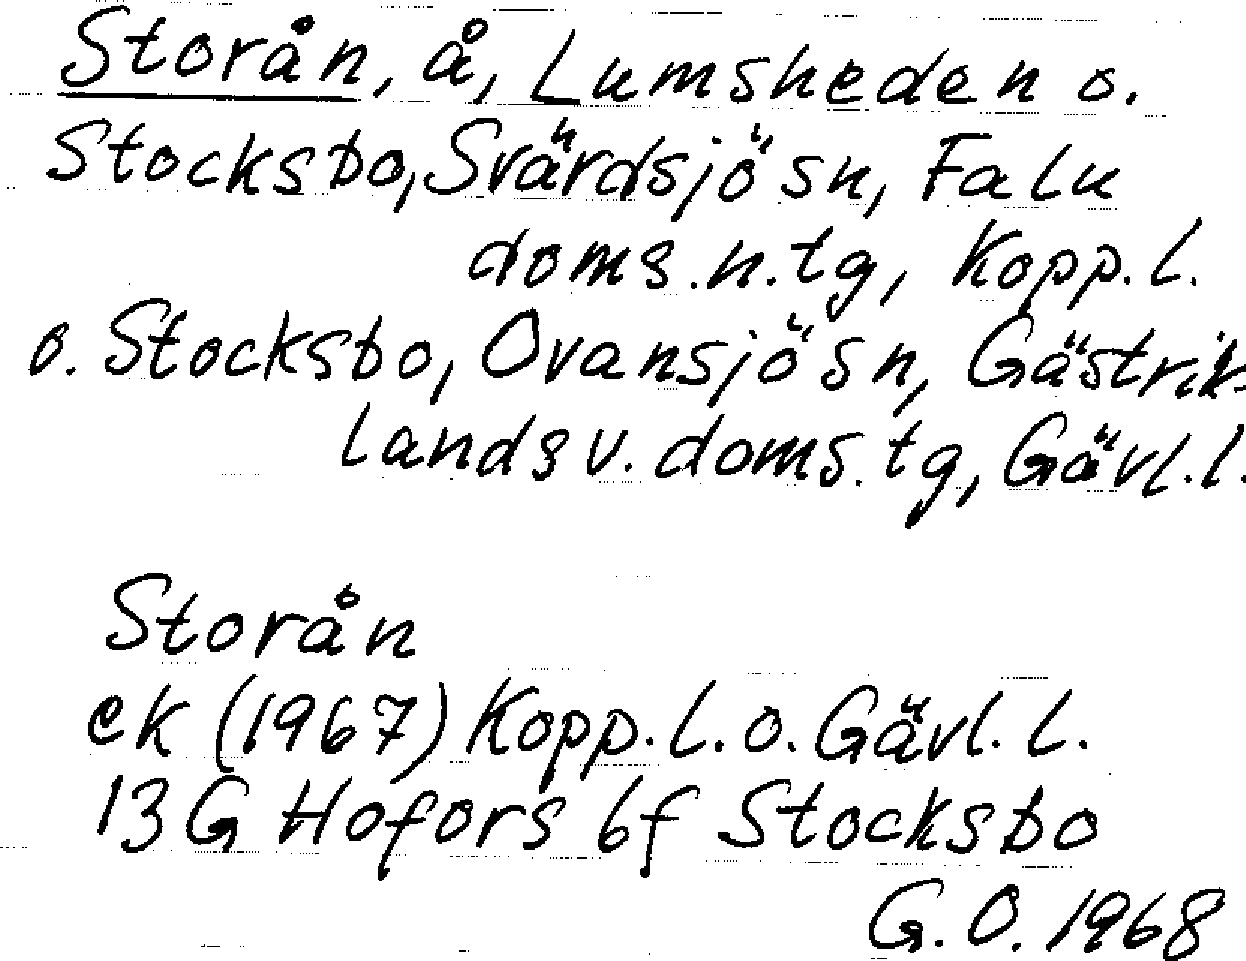 Storån, å, Lumsheden o.
Stocksbo, Svärdsjö sn, Falu
doms.n.tg, Kopp.l.
o. Stocksbo, Ovansjö sn, Gästrik-
lands v. doms.tg, Gävl.l.
Storån
ek (1967) Kopp.l.o. Gävl.l.
13G Hofors 6f Stocksbo
G.O. 1968